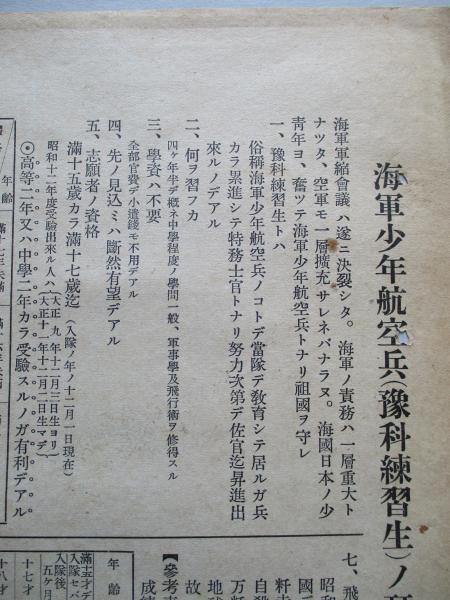 海軍少年航空兵（豫科練習生）ノ
海軍軍縮會議ハ遂ニ決裂シタ。海軍ノ責務ハ一層重大ト
ナツタ、空軍モ一層擴充サレネバナラヌ。海國日本ノ少
青年ヨ、奮ツテ海軍少年航空兵トナリ祖國ヲ守レ
一、豫科練習生トハ
俗稱海軍少年航空兵ノコトデ當隊デ敎育シテ居ルガ兵
カラ累進シテ特務士官トナリ努力次第デ佐官迄昇進出
來ルノデアル
二、何ヲ習フカ
四ヶ年半デ概ネ中學程度ノ學問一般、軍事學及飛行術ヲ修得スル
三、學資ハ不要
全部官費デ小遣錢モ不用デアル
四、先ノ見込ミハ斷然有望デアル
五、志願者ノ資格
滿十五歲カラ滿十七歲迄（入隊ノ年ノ十二月一日現在）
昭和十二年度受驗出來ル人ハ（大正九年十二月三日生ヨリ
大正十一年十二月二日生マデ）
◎高等二年又ハ中學二年カラ受驗スルノガ有利デアル
年齡
七、飛
昭和
國
粁
自
万粁
地球
故
【參考
成
年齡
滿十五才デ
入隊セバ
入隊後
五ヶ月
十七才
十八才